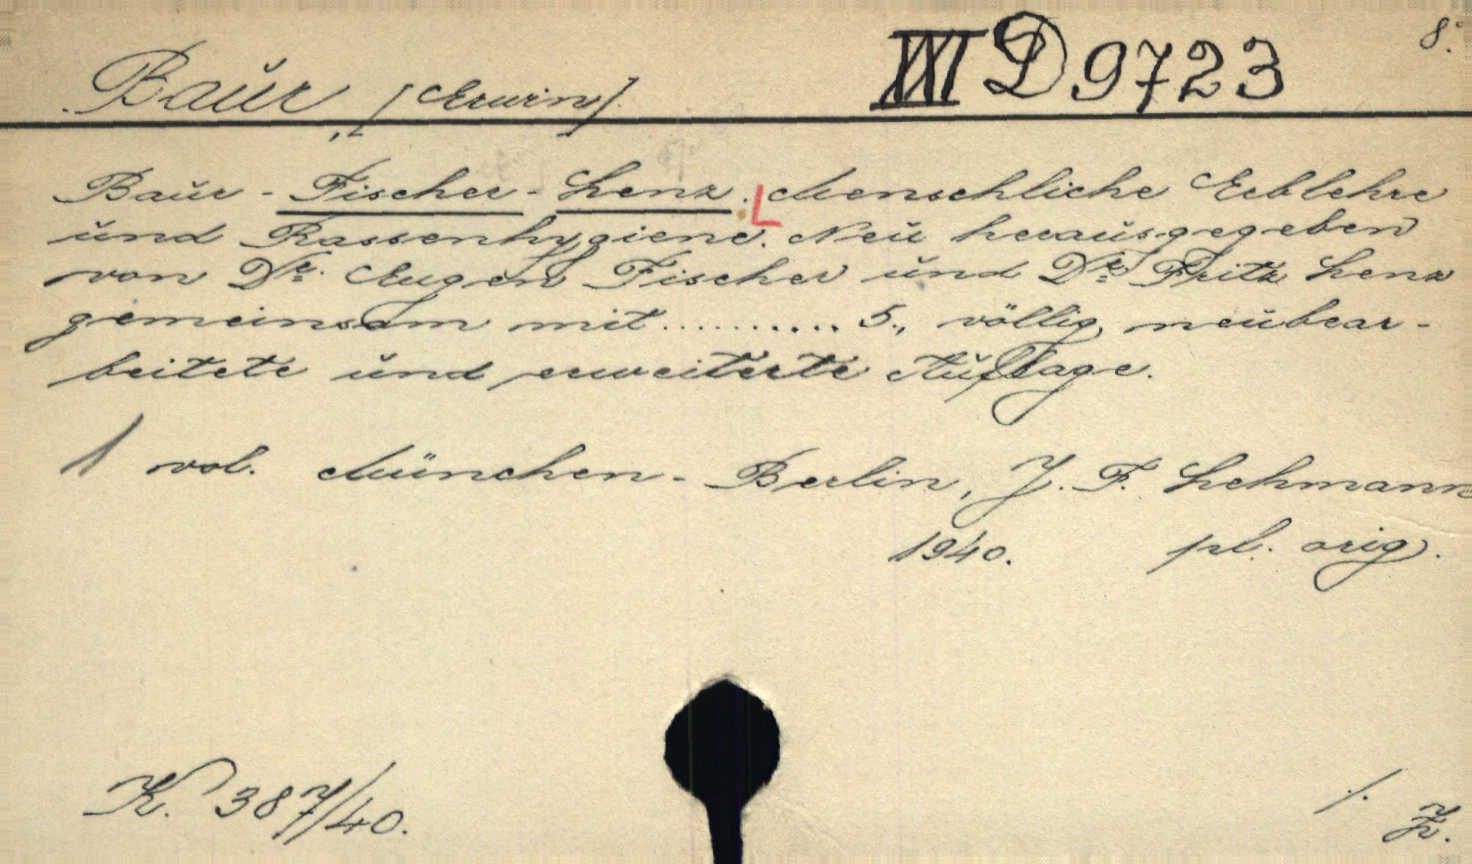 Baur, [Erwin].
XXI D 9723
8.°
Baur - Fischer - Lenz. Menschliche Erblehre
und Rassenhygiene. Neu herausgegeben
von Dr. Eugen Fischer und Dr. Fritz Lenz
gemeinsam mit .......... 5., völlig neubear-
beitete und erweiterte Auflage.
1 vol. München - Berlin, J. F. Lehmann
1940. pl. orig.
K. 387/40.
/. Z.